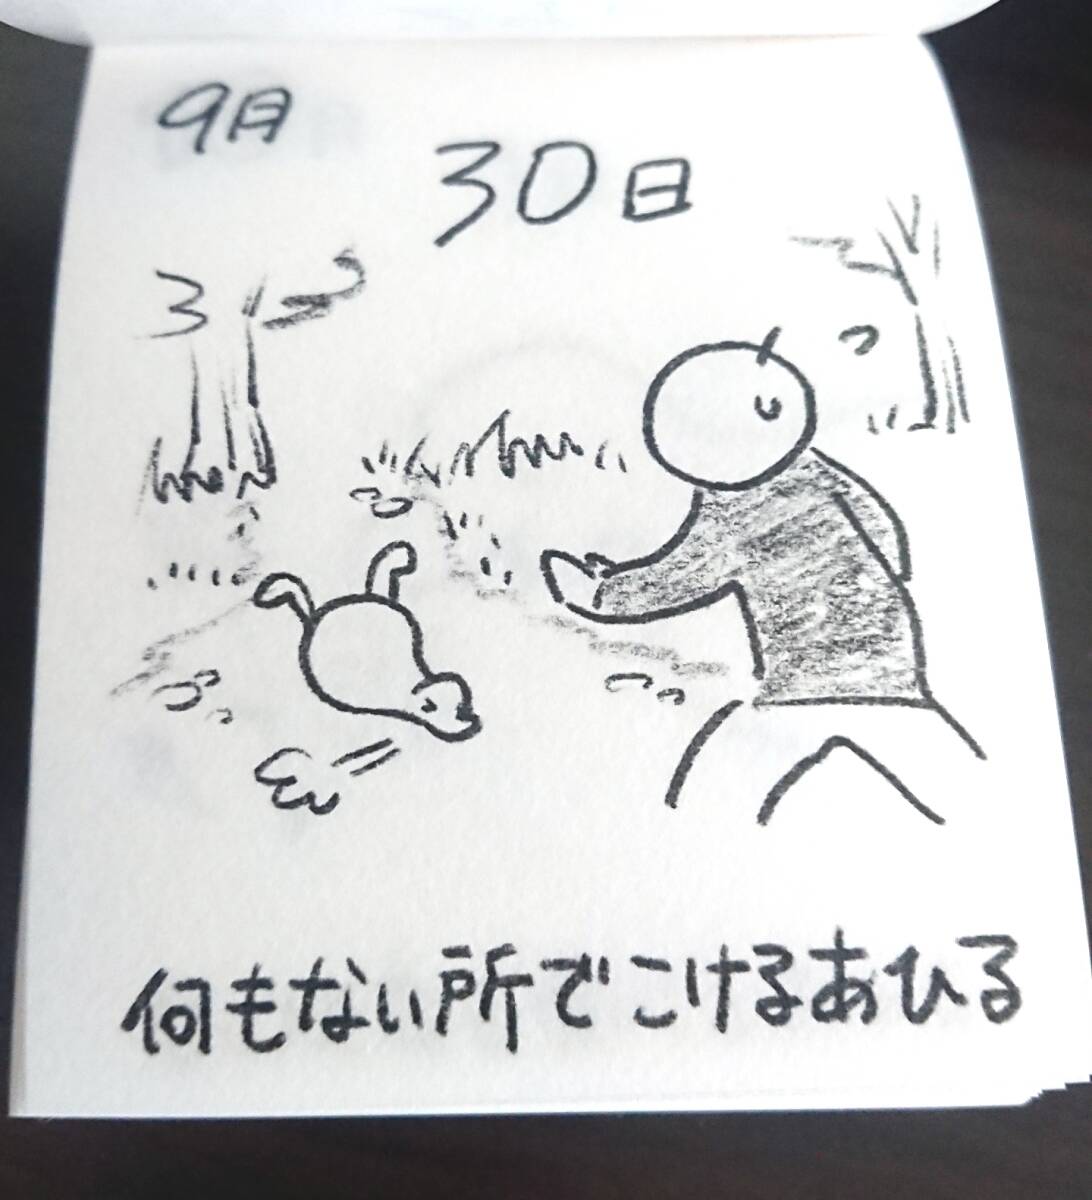 9月
30日
何もない所でこけるあひる